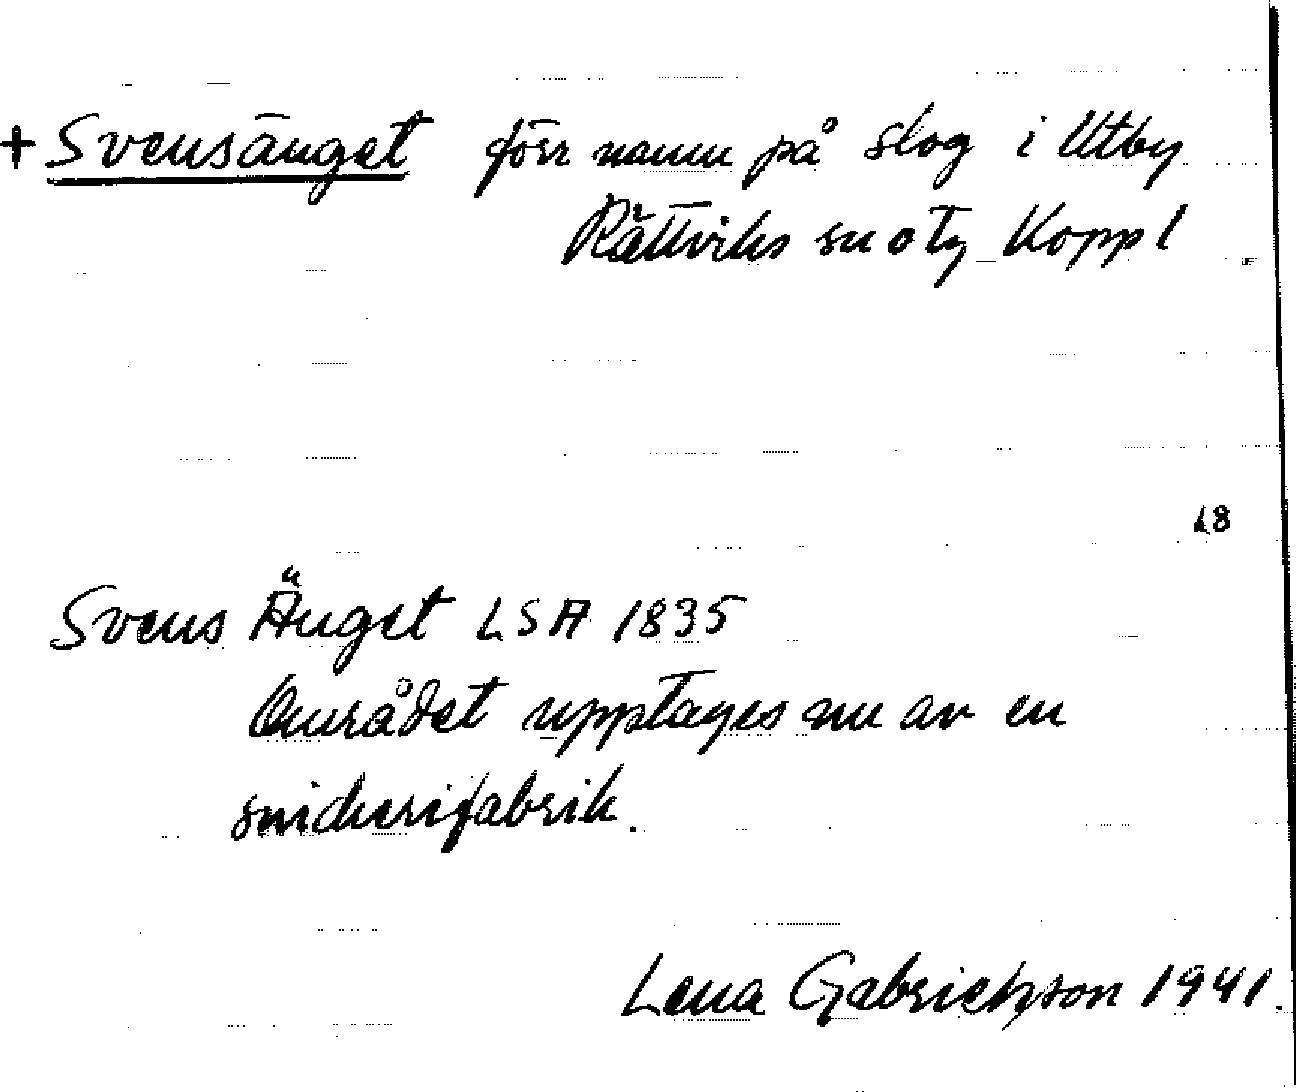 + Svensänget förr namn på slog i Utby
Rättviks sn o tg Koppl
18
Svens Änget LSA 1835
Området upptages nu av en
snickerifabrik.
Lena Gabrielsson 1941.